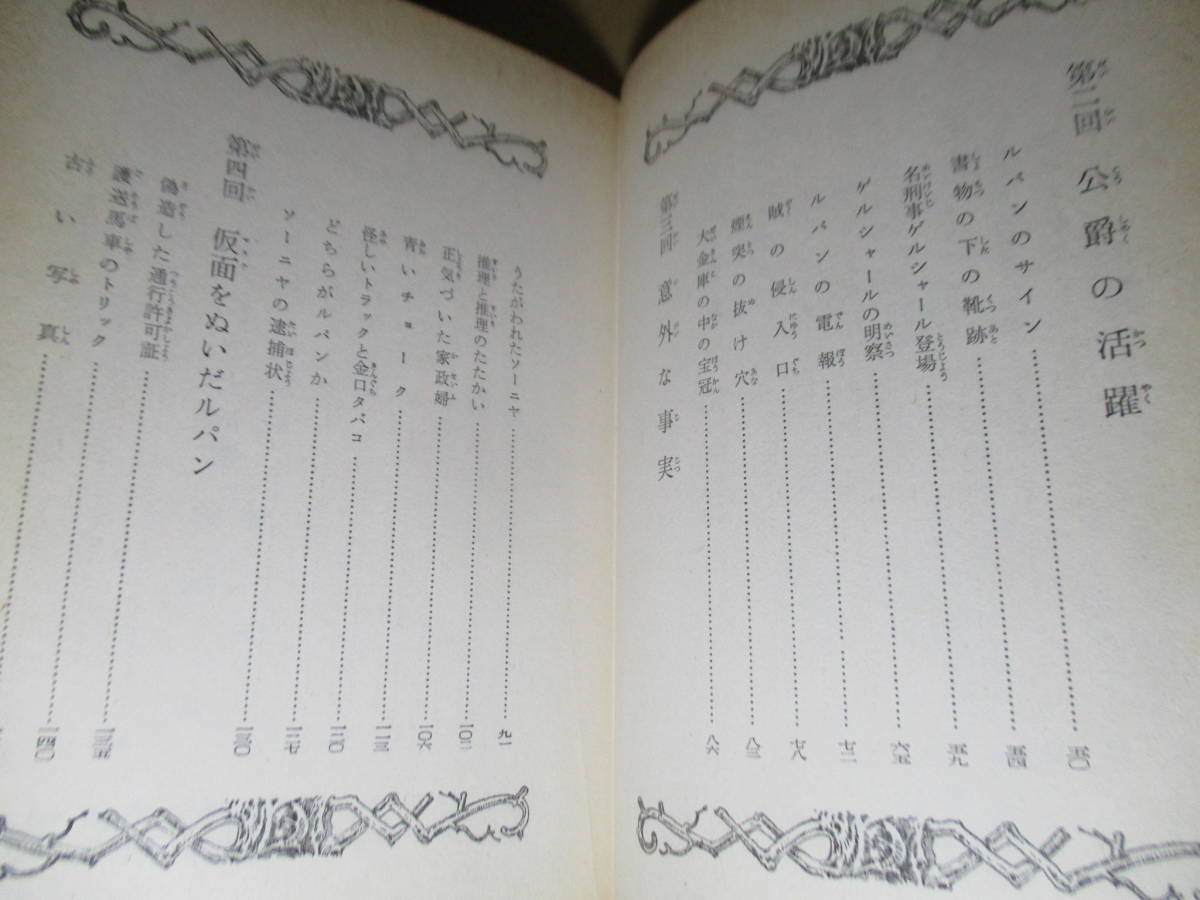 第二回 公爵の活躍
ルパンのサイン……………五〇
書物の下の靴跡……………五四
名刑事ゲルシャール登場……………五九
ゲルシャールの明察……………六五
ルパンの電報……………七二
賊の侵入口……………七八
煙突の抜け穴……………八三
大金庫の中の宝冠……………八六
第三回 意外な事実
うたがわれたソーニャ……………九一
推理と推理のたたかい……………一〇二
正気づいた家政婦……………一〇六
青いチョーク……………一一三
怪しいトラックと金口タバコ……………一二〇
どちらがルパンか……………一二七
ソーニャの逮捕状……………一三〇
第四回 仮面をぬいだルパン
偽造した通行許可証……………一三五
護送馬車のトリック……………一四〇
古い写真……………